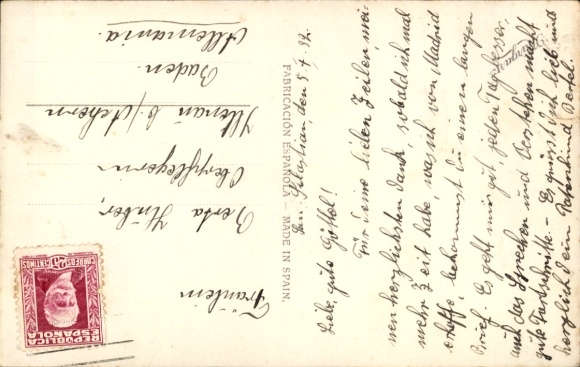 San Sebastian, den 5.4.32.
Liebe, gute Göttel!
Für deine lieben Zeilen mei-
nen herzlichsten Dank, sobald ich mal
mehr Zeit habe, was ich von Madrid
erhoffe, bekommst du einen langen
Brief. Es geht mir gut, jeden Tag besser,
auch das Sprechen und Verstehen macht
gute Fortschritte. - Es grüsst dich lieb und
herzlich dein Bertel.
FABRICACIÓN ESPAÑOLA - MADE IN SPAIN.
Fräulein
Berta Huber,
Oberpflegerin
Illenau b/Achern
Baden.
Allemania.
REPÚBLICA
ESPAÑOLA
CORREOS
CENTIMOS